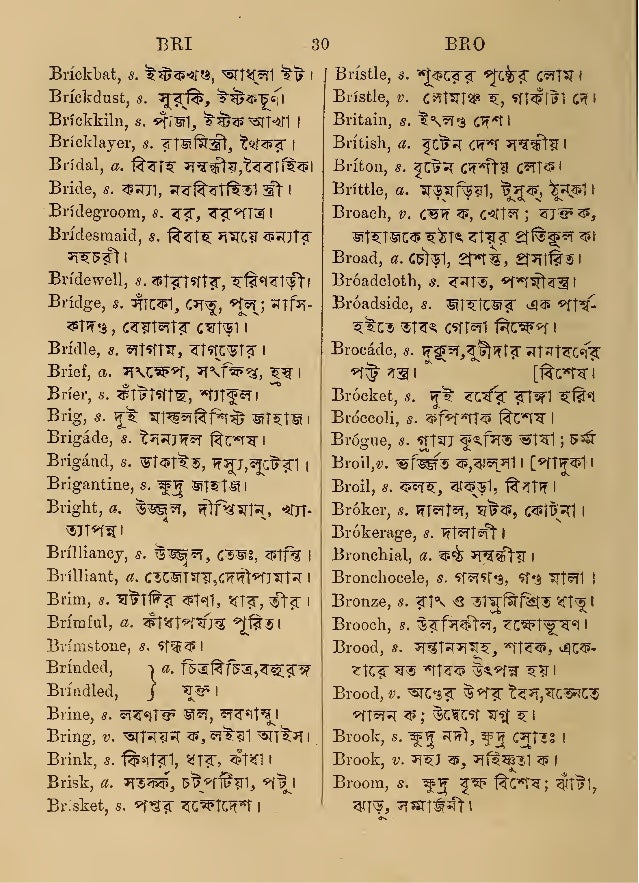 BRI 30 BRO
Bríckbat, s. ইষ্টকখণ্ড, আধ্‌লা ইট।
Bríckdust, s. সুর্‌কি, ইষ্টকচূর্ণ।
Bríckkiln, s. পাঁজা, ইষ্টক আখা।
Brícklayer, s. রাজমিস্ত্রী, থৈকর।
Brídal, a. বিবাহ সম্বন্ধীয়, বৈবাহিক।
Bride, s. কন্যা, নববিবাহিতা স্ত্রী।
Brídegroom, s. বর, বরপাত্র।
Brídesmaid, s. বিবাহ সময়ে কন্যার
সহচরী।
Brídewell, s. কারাগার, হরিণবাড়ী।
Brídge, s. সাঁকো, সেতু, পুল্; নাসি-
কাদণ্ড, বেয়ালার ঘোড়া।
Brídle, s. লাগাম, বাগ্‌ডোর।
Brief, a. সংক্ষেপ, সংক্ষিপ্ত, হ্রস্ব।
Bríer, s. কাঁটাগাছ, শ্যাকুল।
Brig, s. দুই মাস্তুলবিশিষ্ট জাহাজ।
Brigáde, s. সৈন্যদল বিশেষ।
Brigánd, s. ডাকাইত, দস্যু, লুটেরা।
Brigantine, s. ক্ষুদ্র জাহাজ।
Bright, a. উজ্জ্বল, দীপ্তিমান্, খ্যা-
ত্যাপন্ন।
Brílliancy, s. উজ্জ্বল, তেজঃ, কান্তি।
Brílliant, a. তেজোময়, দেদীপ্যমান।
Brim, s. ঘটাদির কাণা, ধার, তীর।
Brímful, a. কাঁধাপর্য্যন্ত পূরিত।
Brímstone, s. গন্ধক।
Brínded, } a. চিত্রবিচিত্র, বহুরঙ্গ
Bríndled, } যুক্ত।
Brine, s. লবণাক্ত জল, লবণাম্বু।
Bring, v. আনয়ন ক, লইয়া আইস।
Brink, s. কিণারা, ধার, কাঁধা।
Brisk, a. সতর্ক, চট্‌পটিয়া, পটু।
Brisket, s. পশুর বক্ষোদেশ।
Brístle, s. শূকরের পৃষ্ঠের লোম।
Brístle, v. লোমাঞ্চ হ, গাকাঁটা দে।
Britain, s. ইংলণ্ড দেশ।
Brítish, a. বৃটেন দেশ সম্বন্ধীয়।
Bríton, s. বৃটেন দেশীয় লোক।
Bríttle, a. মড়্‌মড়িয়া, টুসুক্, ঠুন্‌কা।
Broach, v. ভেদ ক, খোল; ব্যক্ত ক,
জাহাজকে হঠাৎ বায়ুর প্রতিকূল ক।
Broad, a. চৌড়া, প্রশস্ত, প্রসারিত।
Bróadcloth, s. বনাত, পশমীবস্ত্র।
Bróadside, s. জাহাজের এক পার্শ্ব-
হইতে তাবৎ গোলা নিক্ষেপ।
Brocáde, s. দুকূল, বুটীদার নানাবর্ণের
পট্ট বস্ত্র। [বিশেষ।
Brócket, s. দুই বর্ষের রাঙ্গা হরিণ
Bróccoli, s. কপিশাক বিশেষ।
Brógue, s. গ্রাম্য কুৎসিত ভাষা; চর্ম্ম
Broil, v. ভর্জ্জিত ক, ঝল্‌সা। [পাদুকা।
Broil, s. কলহ, ঝক্‌ড়া, বিবাদ।
Bróker, s. দালাল, ঘটক, কোট্‌না।
Brókerage, s. দালালী।
Bronchial, a. কণ্ঠ সম্বন্ধীয়।
Bronchocele, s. গলগণ্ড, গণ্ড মালা।
Bronze, s. রাং ও তাম্রমিশ্রিত ধাতু।
Brooch, s. উরসিকীল, বক্ষোভূষণ।
Brood, s. সন্তানসমূহ, শাবক, একে-
বারে যত শাবক উৎপন্ন হয়।
Brood, v. অণ্ডের উপর বৈস, যত্নেতে
পালন ক; উদ্বেগে মগ্ন হ।
Brook, s. ক্ষুদ্র নদী, ক্ষুদ্র স্রোতঃ।
Brook, v. সহ্য ক, সহিষ্ণুতা ক।
Broom, s. ক্ষুদ্র বৃক্ষ বিশেষ; ঝাঁটা,
ঝাড়ু, সম্মার্জনী।